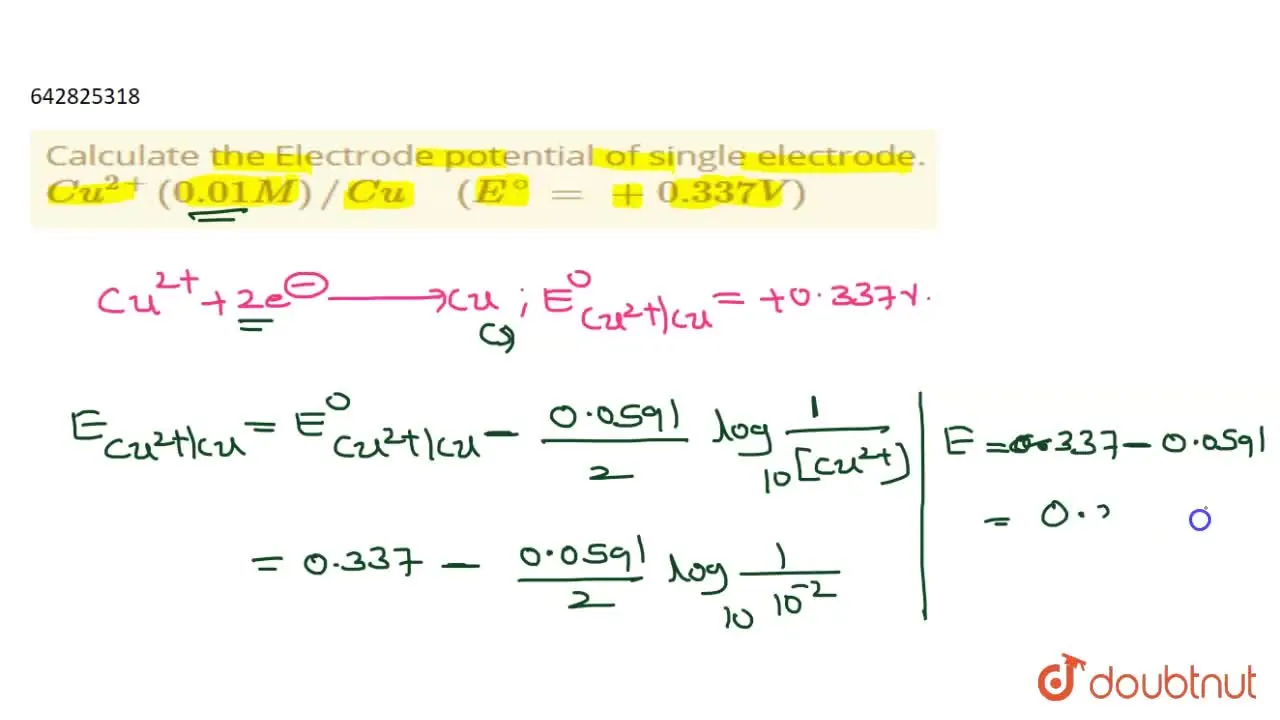 642825318
Calculate the Electrode potential of single electrode.
Cu²⁺ (0.01M)/Cu (E° = + 0.337V)
Cu²⁺ + 2e⊖ ⟶ Cu ; E⁰ Cu²⁺|Cu = +0.337V.
(s)
E Cu²⁺|Cu = E⁰ Cu²⁺|Cu − 0.0591/2 log₁₀ 1/[Cu²⁺]
= 0.337 − 0.0591/2 log₁₀ 1/10⁻²
E = 0.337 − 0.0591
= 0.
doubtnut